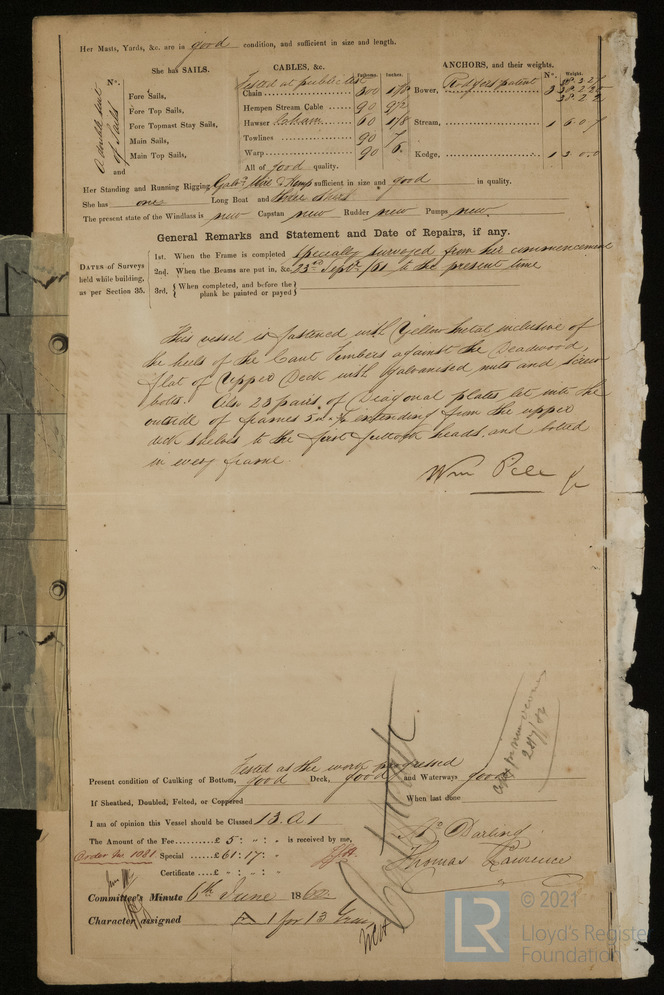 Her Masts, Yards, &c. are in good condition, and sufficient in size and length.
She has SAILS.
CABLES, &c.
ANCHORS, and their weights.
Nº.
Fathoms.
Inches.
Nº.
Weight.
A double suit of Sails
Fore Sails,
Fore Top Sails,
Fore Topmast Stay Sails,
Main Sails,
Main Top Sails,
and
Tested at public test
Chain 300 1 7/8
Hempen Stream Cable 90 9 1/2
Hawser 60 1 1/8
Towlines 90 7
Warp 90 6
All of good quality.
Bower, Rodgers patent 3
Stream, 1
Kedge, 1
Her Standing and Running Rigging Galvd Wire & Hemp sufficient in size and good in quality.
She has one Long Boat and three others
The present state of the Windlass is new Capstan new Rudder new Pumps new.
General Remarks and Statement and Date of Repairs, if any.
DATES of Surveys held while building, as per Section 35.
1st. When the Frame is completed specially surveyed from her commencement
2nd. When the Beams are put in, &c. 23rd Septr /61 to the present time
3rd. { When completed, and before the plank be painted or payed }
This vessel is fastened with Yellow Metal inclusive of
the heels of the Cant Timbers against the Deadwood,
flat of Upper Deck with galvanised nuts and screw
bolts. Also 23 pairs of Diagonal plates let into the
outside of frames extending from the upper
deck shelves to the first futtock heads, and bolted
in every frame.
Wm Pile Jr
Tested as the work progressed
Present condition of Caulking of Bottom, good Deck, good and Waterways good
If Sheathed, Doubled, Felted, or Coppered When last done
I am of opinion this Vessel should be Classed 13. A 1
The Amount of the Fee £ 5 : " : " is received by me,
Order No 1081 Special £ 61 : 17 : "
Certificate £ " : " : "
As Darling
Thomas Lawrence
Committee's Minute 6th June 1862
Character assigned A 1 for 13 Years
© 2021
LR
Lloyd's Register
Foundation